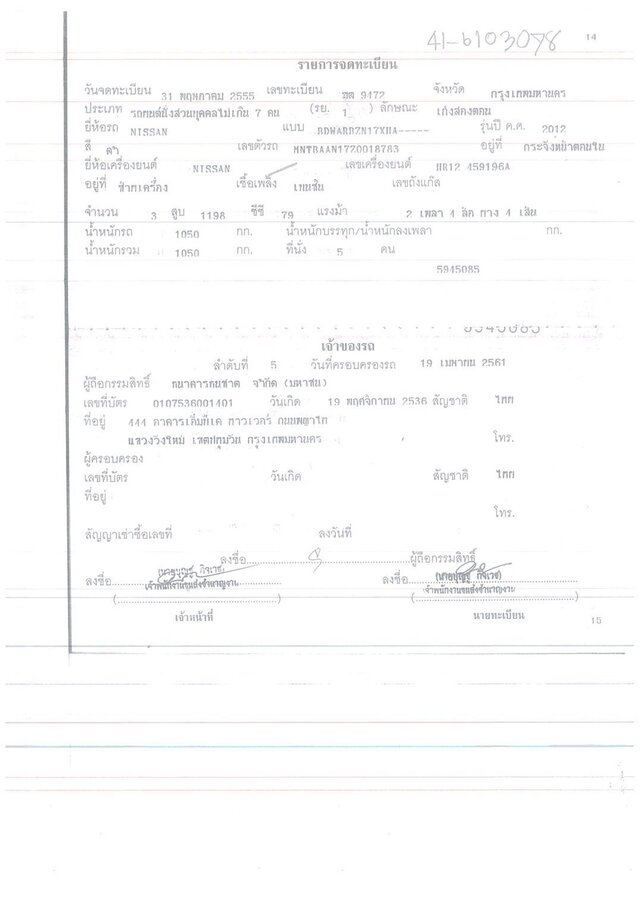 41-6103078 14
รายการจดทะเบียน
วันจดทะเบียน 31 พฤษภาคม 2555 เลขทะเบียน 9472 จังหวัด กรุงเทพมหานคร
ประเภท รถยนต์นั่งส่วนบุคคลไม่เกิน 7 คน (รย. 1 ) ลักษณะ เก๋งสองตอน
ยี่ห้อรถ NISSAN แบบ รุ่นปี ค.ศ. 2012
สี ดำ เลขตัวรถ MNTBAAN17Z0018783 อยู่ที่ กระจังหน้าตอนใน
ยี่ห้อเครื่องยนต์ NISSAN เลขเครื่องยนต์ HR12 459196A
อยู่ที่ ข้างเครื่อง เชื้อเพลิง เบนซิน เลขถังแก๊ส
จำนวน 3 สูบ 1198 ซีซี 79 แรงม้า 2 เพลา 4 ล้อ ยาง 4 เส้น
น้ำหนักรถ 1050 กก. น้ำหนักบรรทุก/น้ำหนักลงเพลา กก.
น้ำหนักรวม 1050 กก. ที่นั่ง 5 คน
5945085
5945085
เจ้าของรถ
ลำดับที่ 5 วันที่ครอบครองรถ 19 เมษายน 2561
ผู้ถือกรรมสิทธิ์ ธนาคารธนชาต จำกัด (มหาชน)
เลขที่บัตร 0107536001401 วันเกิด 19 พฤศจิกายน 2536 สัญชาติ ไทย
ที่อยู่ 444 อาคารเอ็มบีเค ทาวเวอร์ ถนนพญาไท
แขวงวังใหม่ เขตปทุมวัน กรุงเทพมหานคร โทร.
ผู้ครอบครอง
เลขที่บัตร วันเกิด สัญชาติ ไทย
ที่อยู่
โทร.
สัญญาเช่าซื้อเลขที่ ลงวันที่
ลงชื่อ ผู้ถือกรรมสิทธิ์
ลงชื่อ ลงชื่อ
เจ้าพนักงานขนส่งชำนาญงาน เจ้าพนักงานขนส่งชำนาญงาน
เจ้าหน้าที่ นายทะเบียน
15